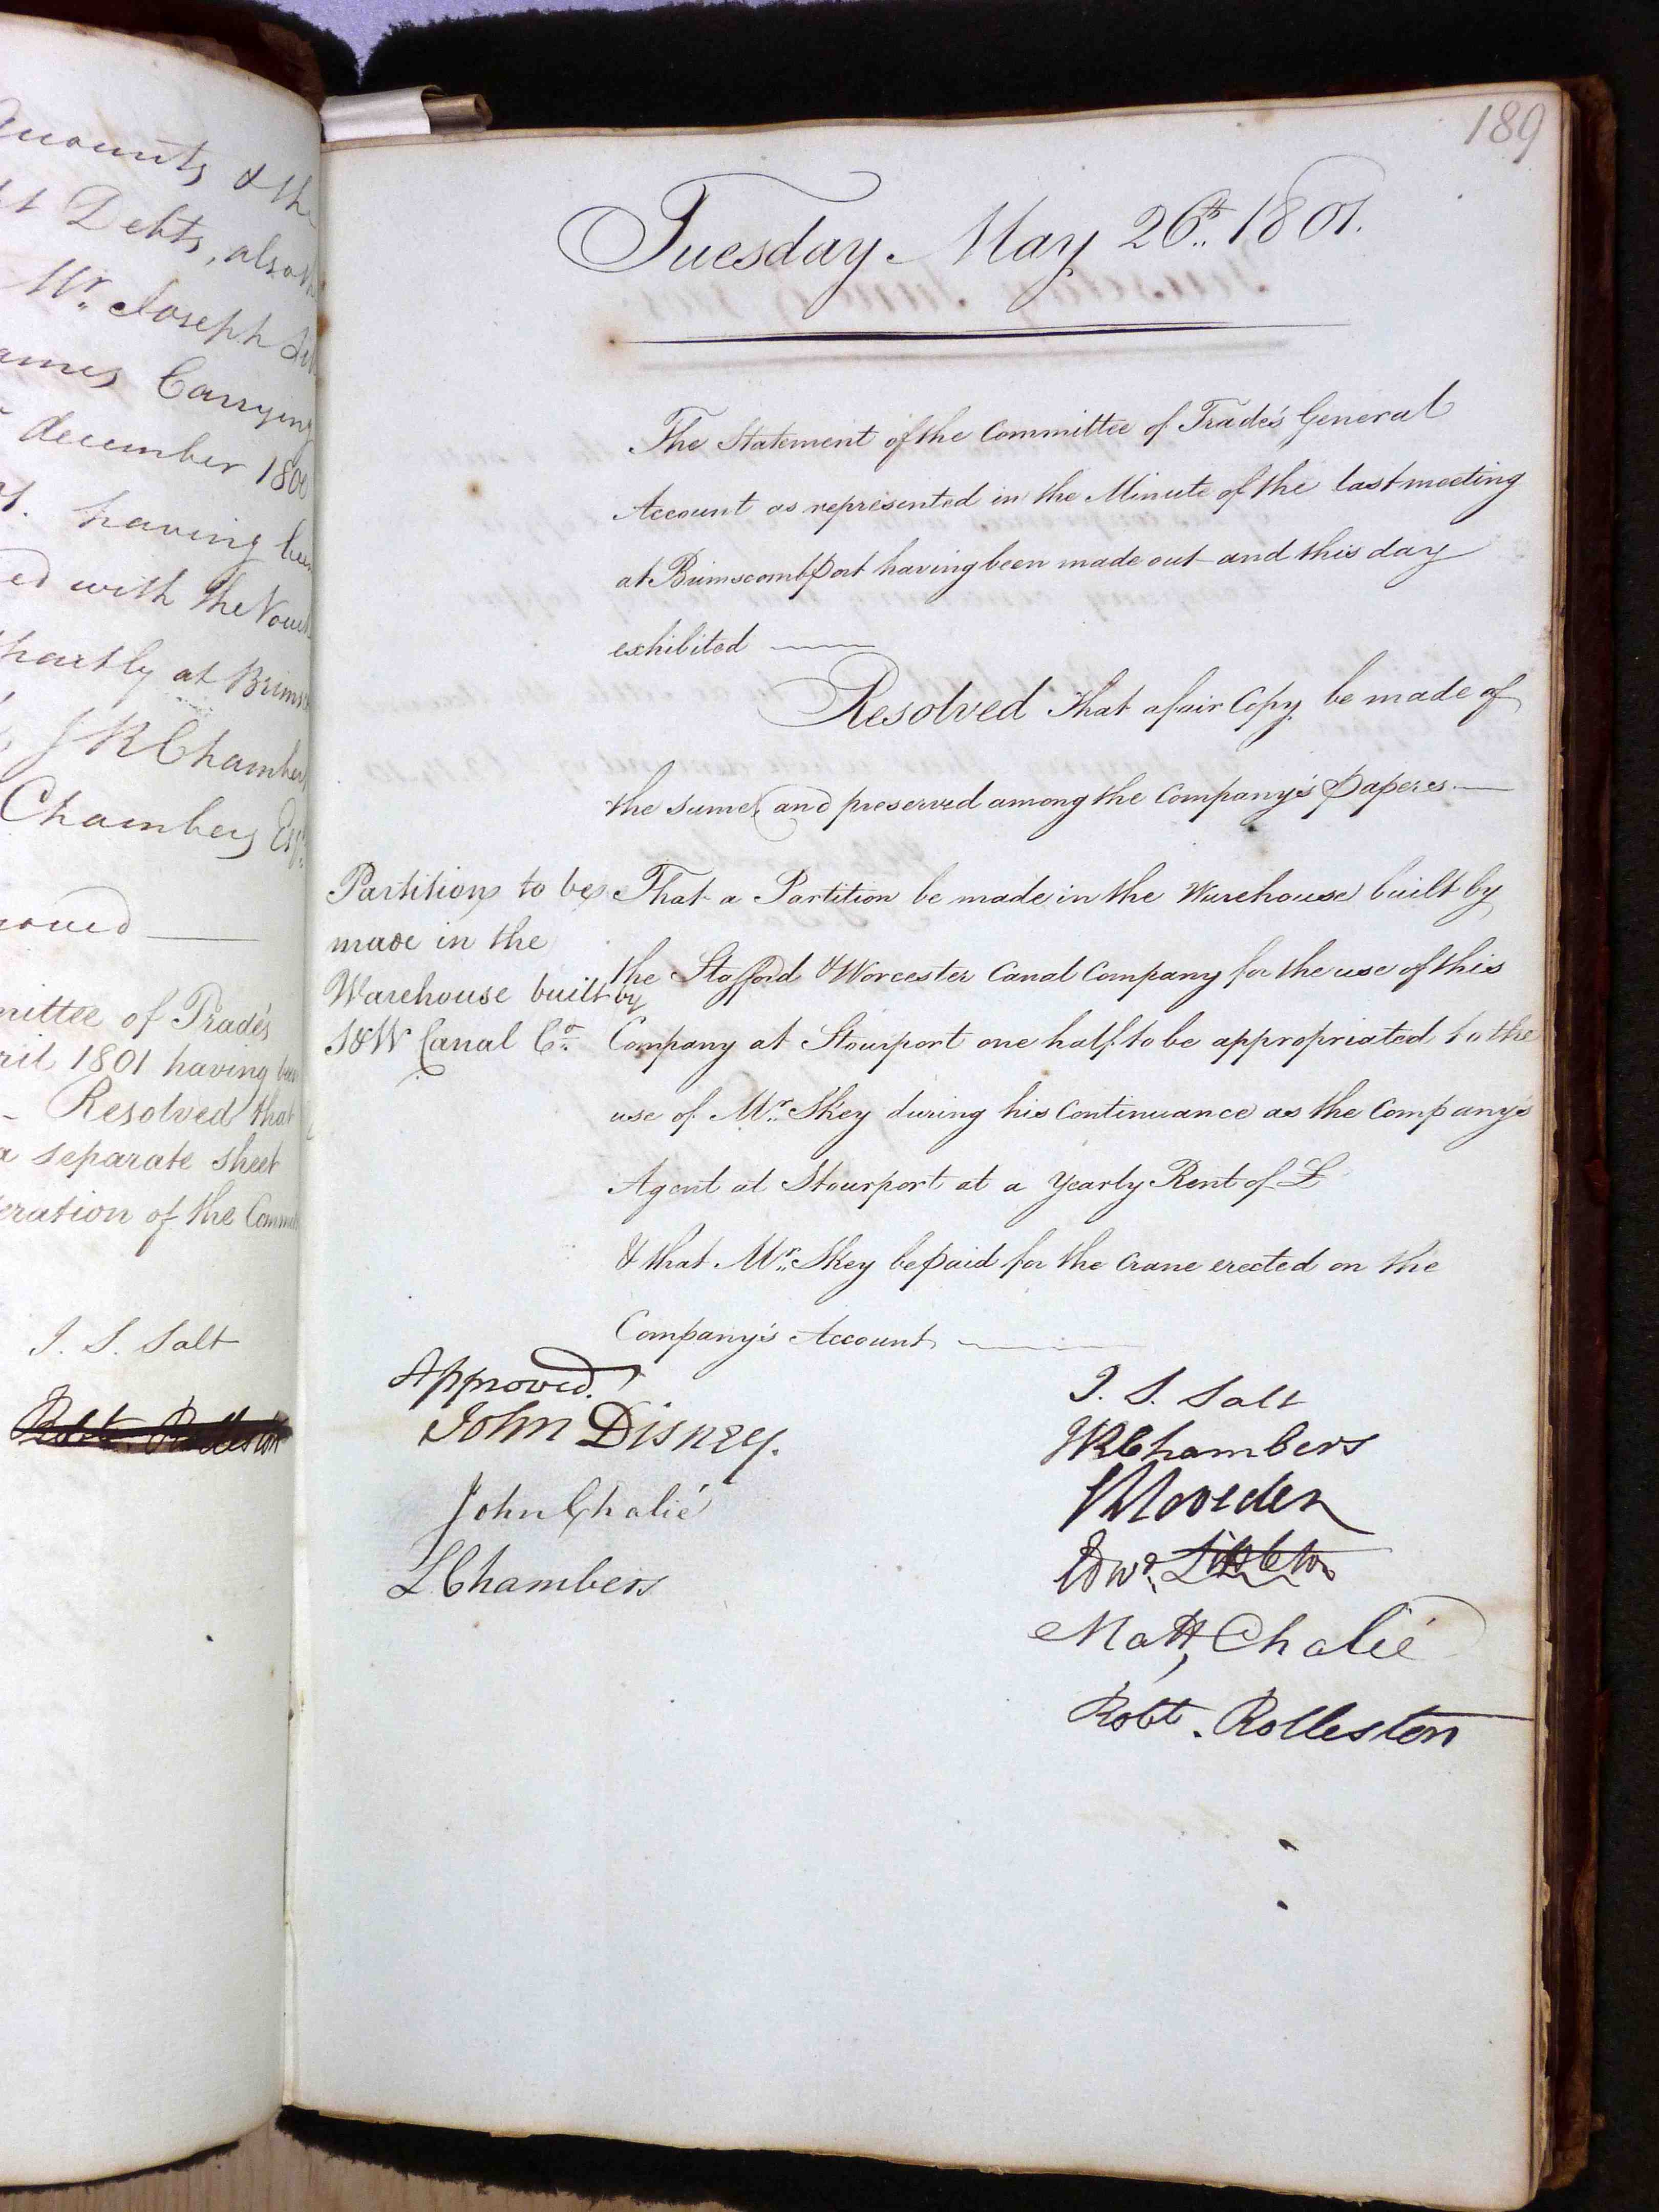 ccounts & the
Debts, also
Mr. Joseph
ames Carrying
december 180
having
ed with the
partly at Brims
J R Chambers
Chambers Esqr.
roved
mittee of Trade's
ril 1801 having
Resolved that
a separate sheet
eration of the
J. S. Salt
Robt. Rolleston
189
Tuesday May 26th. 1801.
The Statement of the Committee of Trade's General
Account as represented in the Minute of the last meeting
at Brimscomb Port having been made out and this day
exhibited
Resolved That a fair Copy be made of
the same, and preserved among the Company's Papers
Partitions to be
made in the
Warehouse built by
S&W Canal Co.
That a Partition be made in the Warehouse built by
the Stafford & Worcester Canal Company for the use of this
Company at Stourport one half to be appropriated to the
use of Mr. Skey during his Continuance as the Company's
Agent at Stourport at a Yearly Rent of £
& that Mr. Skey be paid for the Crane erected on the
Company's Account
Approved.
John Disney.
John Chalié
L Chambers
J. S. Salt
JR Chambers
Edwd. Littleton
Matt, Chalié
Robt. Rolleston